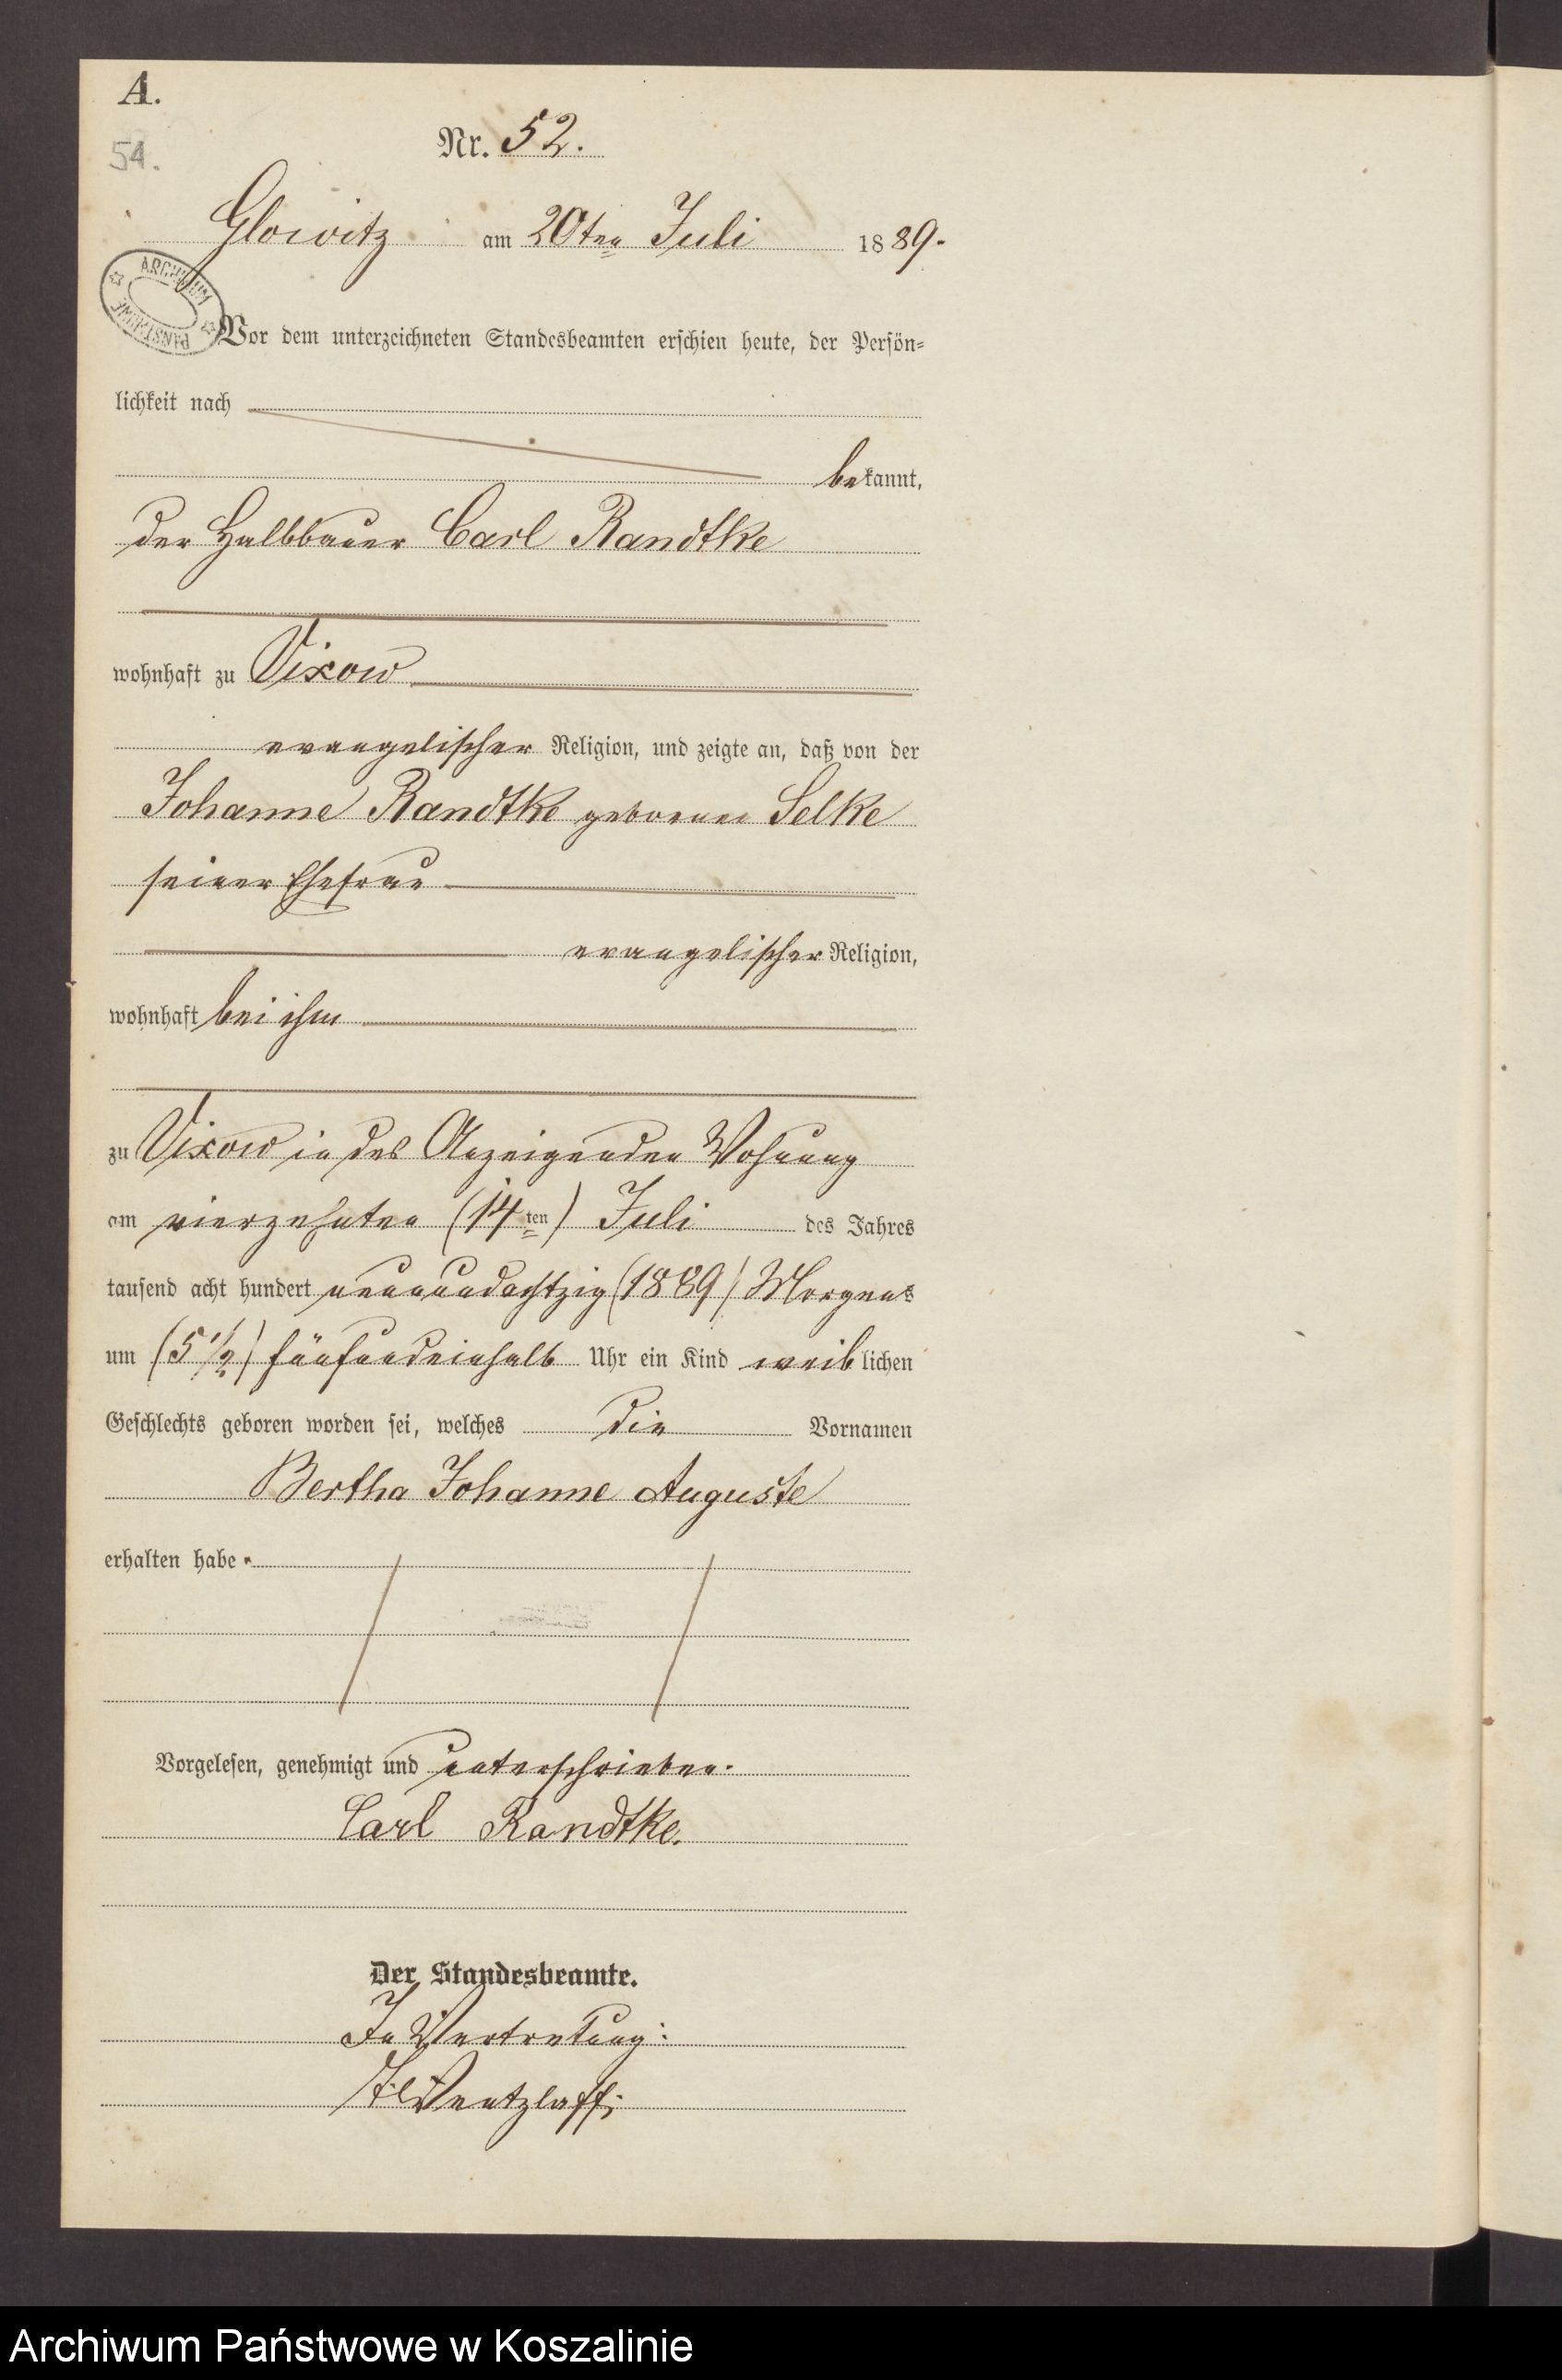 A.
54.
Nr. 52.
Glowitz am 20ten Juli 1889.
ARCHIWUM PAŃSTWOWE
Vor dem unterzeichneten Standesbeamten erschien heute, der Persön-
lichkeit nach
bekannt,
der Halbbauer Carl Randtke
wohnhaft zu Vixow
evangelischer Religion, und zeigte an, daß von der
Johanne Randtke geborene Selke
seiner Ehefrau
evangelischer Religion,
wohnhaft bei ihm
zu Vixow in des Anzeigenden Wohnung
am vierzehnten (14ten) Juli des Jahres
tausend acht hundert neunundachtzig (1889) Morgens
um (5 1/2) fünfundeinhalb Uhr ein Kind weiblichen
Geschlechts geboren worden sei, welches die Vornamen
Bertha Johanne Auguste
erhalten habe.
Vorgelesen, genehmigt und unterschrieben.
Carl Randtke.
Der Standesbeamte.
In Vertretung:
Wentzlaff.
Archiwum Państwowe w Koszalinie